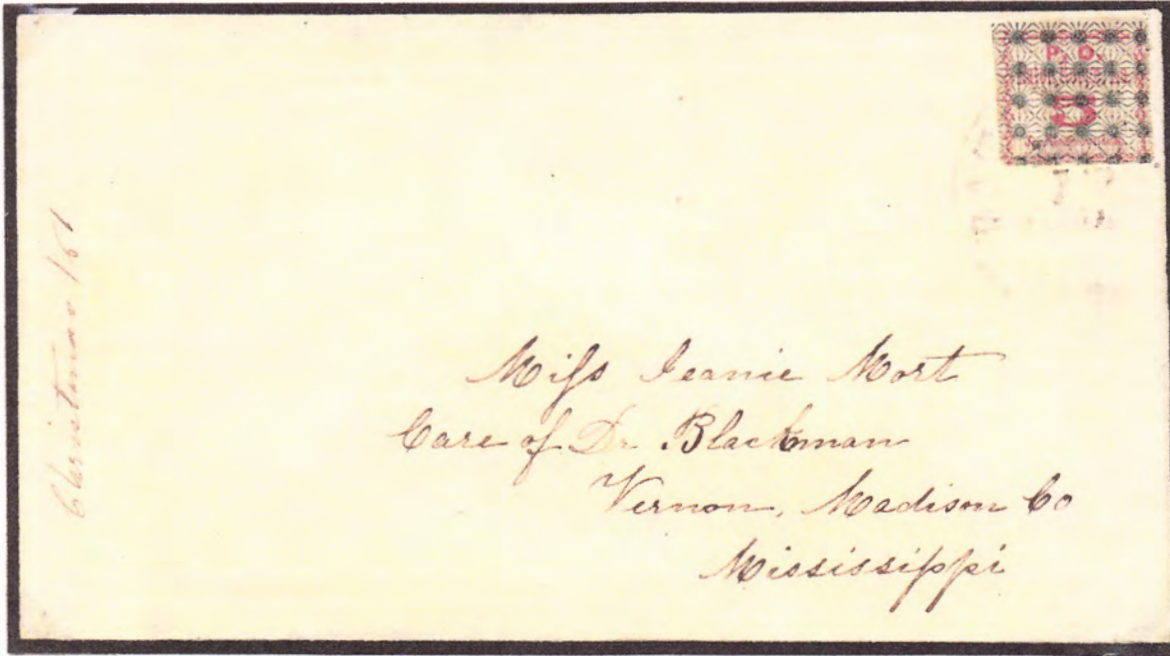 P. O.
5
Christmas 1861
Miſs Jeanie Mort
Care of Dr Blackman
Vernon, Madison Co
Mississippi